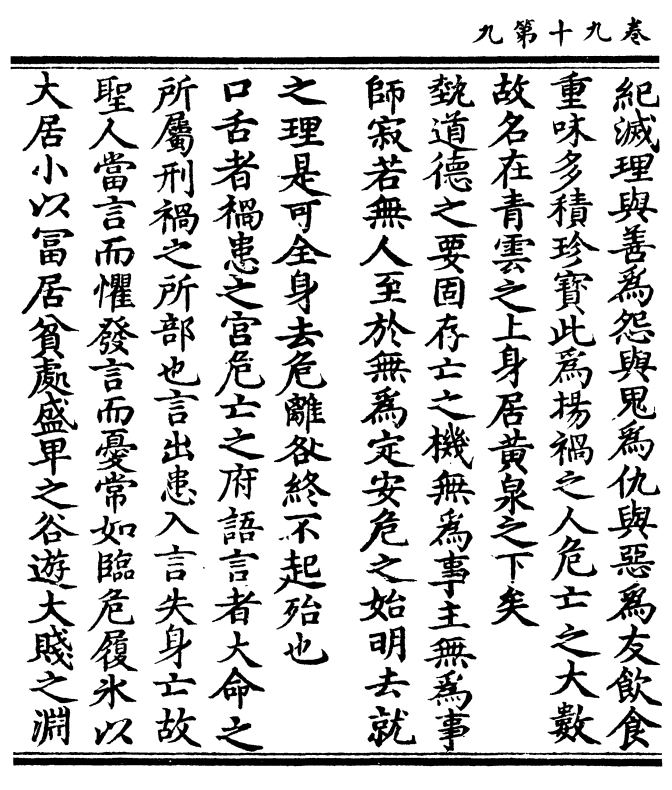 卷九十第九
紀滅理與善爲怨與鬼爲仇與惡爲友飲食
重味多積珍寶此爲揚禍之人危亡之大數
故名在青雲之上身居黄泉之下矣
埶道德之要固存亡之機無爲事主無爲事
師寂若無人至於無爲定安危之始明去就
之理是可全身去危離咎終不起殆也
口舌者禍患之宮危亡之府語言者大命之
所屬刑禍之所部也言出患入言失身亡故
聖人當言而懼發言而憂常如臨危履氷以
大居小以冨居貧處盛卑之谷遊大賤之淵